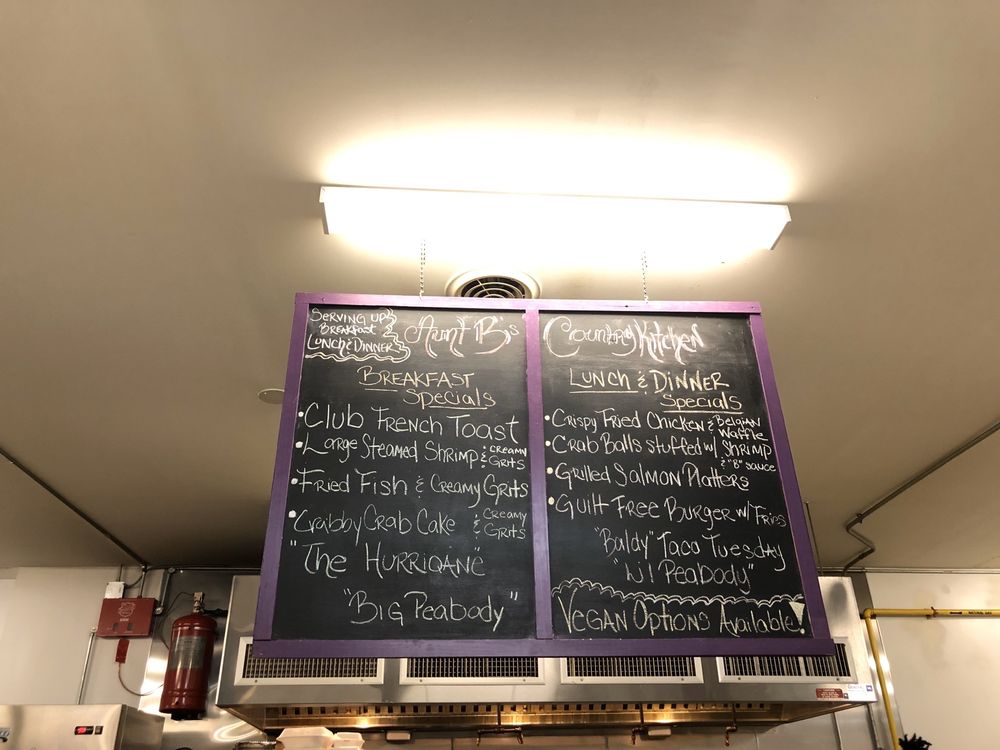 SERVING UP
Breakfast
Lunch & Dinner
Aunt B's
Country Kitchen
Breakfast
Specials
• Club French Toast
• Large Steamed Shrimp & Creamy
Grits
• Fried Fish & Creamy Grits
• Crabby Crab Cake & Creamy
Grits
"The Hurricane"
"Big Peabody"
Lunch & Dinner
Specials
• Crispy Fried Chicken & Belgian
Waffle
• Crab Balls stuffed w/ Shrimp
& "B" sauce
• Grilled Salmon Platters
• Guilt Free Burger w/ Fries
"Baldy" Taco Tuesday
"Lil Peabody"
Vegan Options Available!